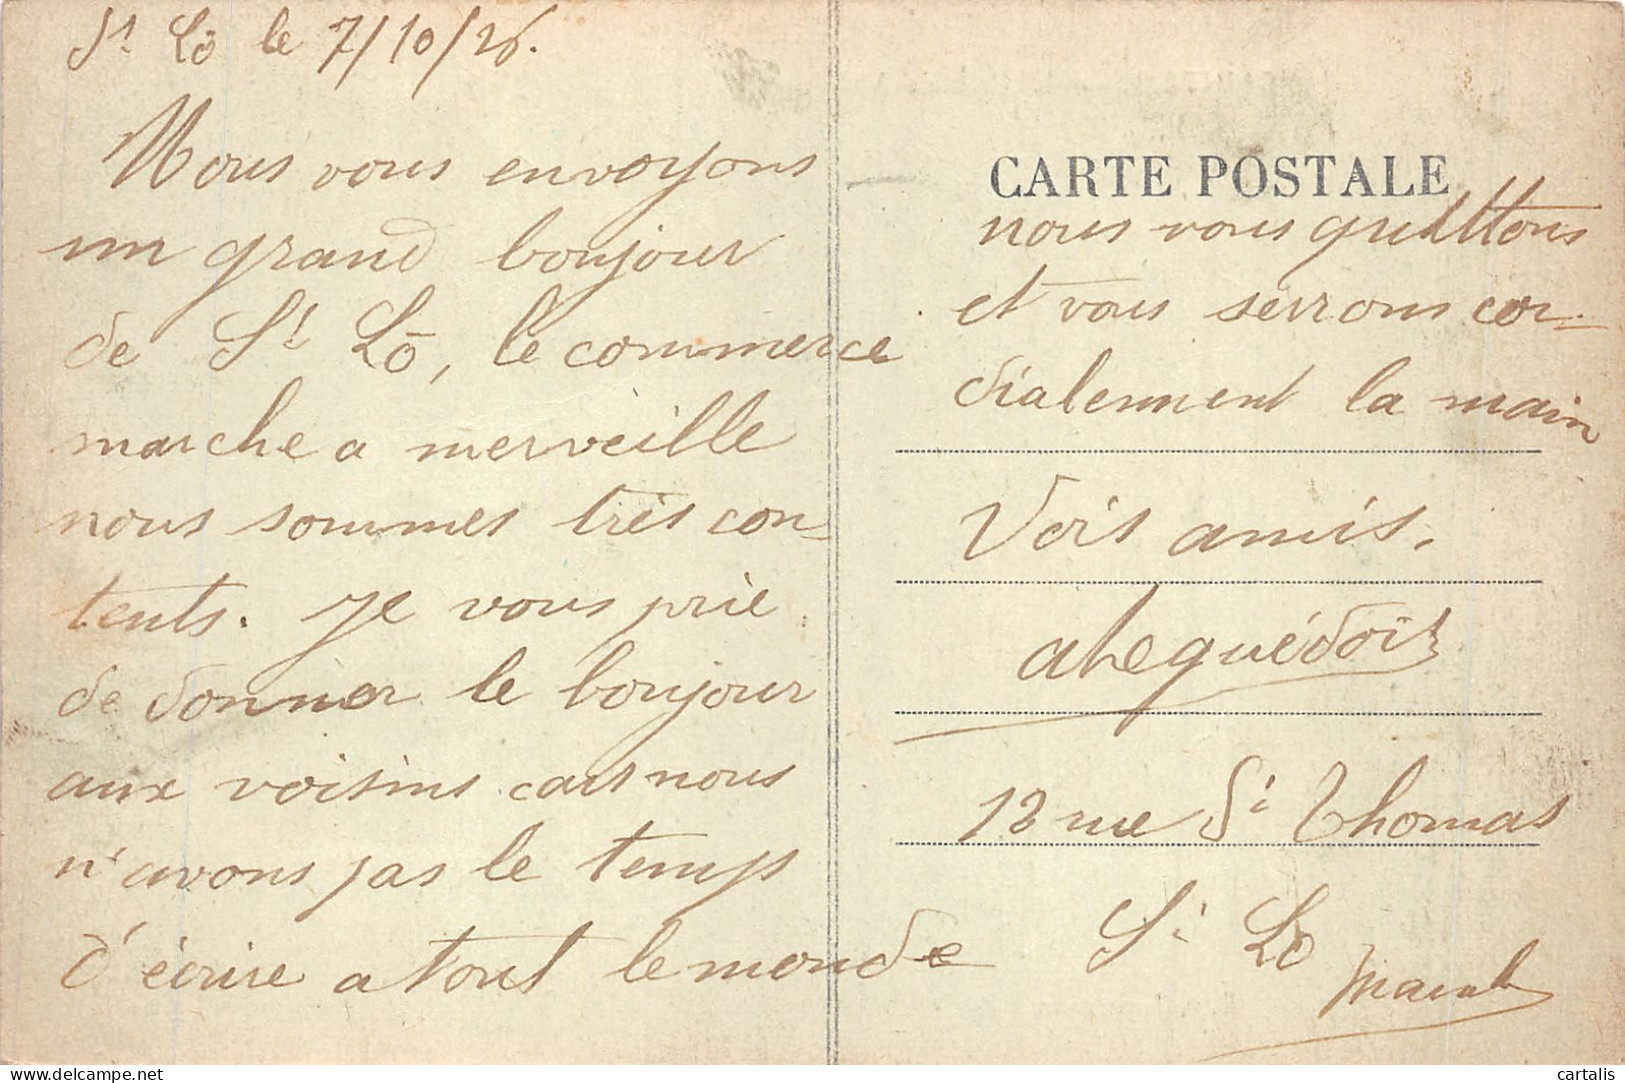 St Lô le 7/10/26.
Nous vous envoyons
un grand bonjour
de St Lô, le commerce
marche a merveille
nous sommes très con-
tents. Je vous prie
de donner le bonjour
aux voisins cars nous
n'avons pas le temps
d'écrire a tout le monde
CARTE POSTALE
nous vous quittons
et vous serrons cor-
dialement la main
Vois amis.
13 rue St Thomas
St Lô
delcampe.net
cartalis